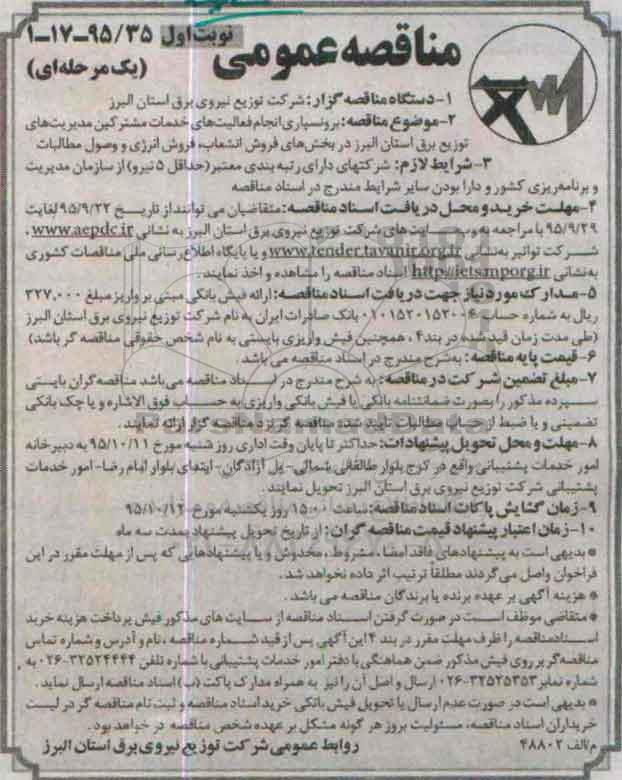 نوبت اول ۹۵/۳۵-۱۷-۱
مناقصه عمومی (یک مرحله‌ای)
۱-دستگاه مناقصه گزار: شرکت توزیع نیروی برق استان البرز
۲-موضوع مناقصه: برونسپاری انجام فعالیت‌های خدمات مشترکین مدیریت‌های
توزیع برق استان البرز در بخش‌های فروش انشعاب، فروش انرژی و وصول مطالبات
۳-شرایط لازم: شرکتهای دارای رتبه بندی معتبر (حداقل ۵ نیرو) از سازمان مدیریت
و برنامه‌ریزی کشور و دارا بودن سایر شرایط مندرج در اسناد مناقصه
۴-مهلت خرید و محل دریافت اسناد مناقصه: متقاضیان می توانند از تاریخ ۹۵/۹/۲۲ لغایت
۹۵/۹/۲۹ با مراجعه به وب سایت های شرکت توزیع نیروی برق استان البرز به نشانی www.aepdc.ir،
شرکت توانیر به نشانی www.tender.tavanir.org.ir و یا پایگاه اطلاع رسانی ملی مناقصات کشوری
به نشانی http://iets.mporg.ir اسناد مناقصه را مشاهده و اخذ نمایند.
۵-مدارک مورد نیاز جهت دریافت اسناد مناقصه: ارائه فیش بانکی مبنی بر واریز مبلغ ۳۲۷,۰۰۰
ریال به شماره حساب ۰۱۰۱۵۲۰۱۵۲۰۰۶ بانک صادرات ایران به نام شرکت توزیع نیروی برق استان البرز
(طی مدت زمان قید شده در بند ۴، همچنین فیش واریزی بایستی به نام شخص حقوقی مناقصه گر باشد)
۶-قیمت پایه مناقصه: به شرح مندرج در اسناد مناقصه می باشد.
۷-مبلغ تضمین شرکت در مناقصه: به شرح مندرج در اسناد مناقصه می باشد مناقصه گران بایستی
سپرده مذکور را بصورت ضمانتنامه بانکی یا فیش بانکی واریزی به حساب فوق الاشاره و یا چک بانکی
تضمینی و یا ضبط از حساب مطالبات تایید شده مناقصه گر نزد مناقصه گزار ارائه نمایند.
۸-مهلت و محل تحویل پیشنهادات: حداکثر تا پایان وقت اداری روز شنبه مورخ ۹۵/۱۰/۱۱ به دبیرخانه
امور خدمات پشتیبانی واقع در کرج بلوار طالقانی شمالی- پل آزادگان- ابتدای بلوار امام رضا- امور خدمات
پشتیبانی شرکت توزیع نیروی برق استان البرز تحویل نمایند.
۹-زمان گشایش پاکات اسناد مناقصه: ساعت ۱۵:۰۰ روز یکشنبه مورخ ۹۵/۱۰/۱۲
۱۰-زمان اعتبار پیشنهاد قیمت مناقصه گران: از تاریخ تحویل پیشنهاد بمدت سه ماه
* بدیهی است به پیشنهادهای فاقد امضا، مشروط، مخدوش و یا پیشنهادهایی که پس از مهلت مقرر در این
فراخوان واصل می گردند مطلقاً ترتیب اثر داده نخواهد شد.
* هزینه آگهی بر عهده برنده یا برندگان مناقصه می باشد.
* متقاضی موظف است در صورت گرفتن اسناد مناقصه از سایت های مذکور فیش پرداخت هزینه خرید
اسناد مناقصه را ظرف مهلت مقرر در بند ۴ این آگهی پس از قید شماره مناقصه، نام و آدرس و شماره تماس
مناقصه گر بر روی فیش مذکور ضمن هماهنگی با دفتر امور خدمات پشتیبانی با شماره تلفن ۳۲۵۲۴۴۴۴-۰۲۶ به
شماره نمابر ۳۲۵۲۵۳۵۳-۰۲۶ ارسال و اصل آن را نیز به همراه مدارک پاکت (ب) اسناد مناقصه ارسال نماید.
* بدیهی است در صورت عدم ارسال یا تحویل فیش بانکی خرید اسناد مناقصه و ثبت نام مناقصه گر در لیست
خریداران اسناد مناقصه، مسئولیت بروز هر گونه مشکل بر عهده شخص مناقصه گر خواهد بود.
م/الف ۴۸۸۰۲
روابط عمومی شرکت توزیع نیروی برق استان البرز